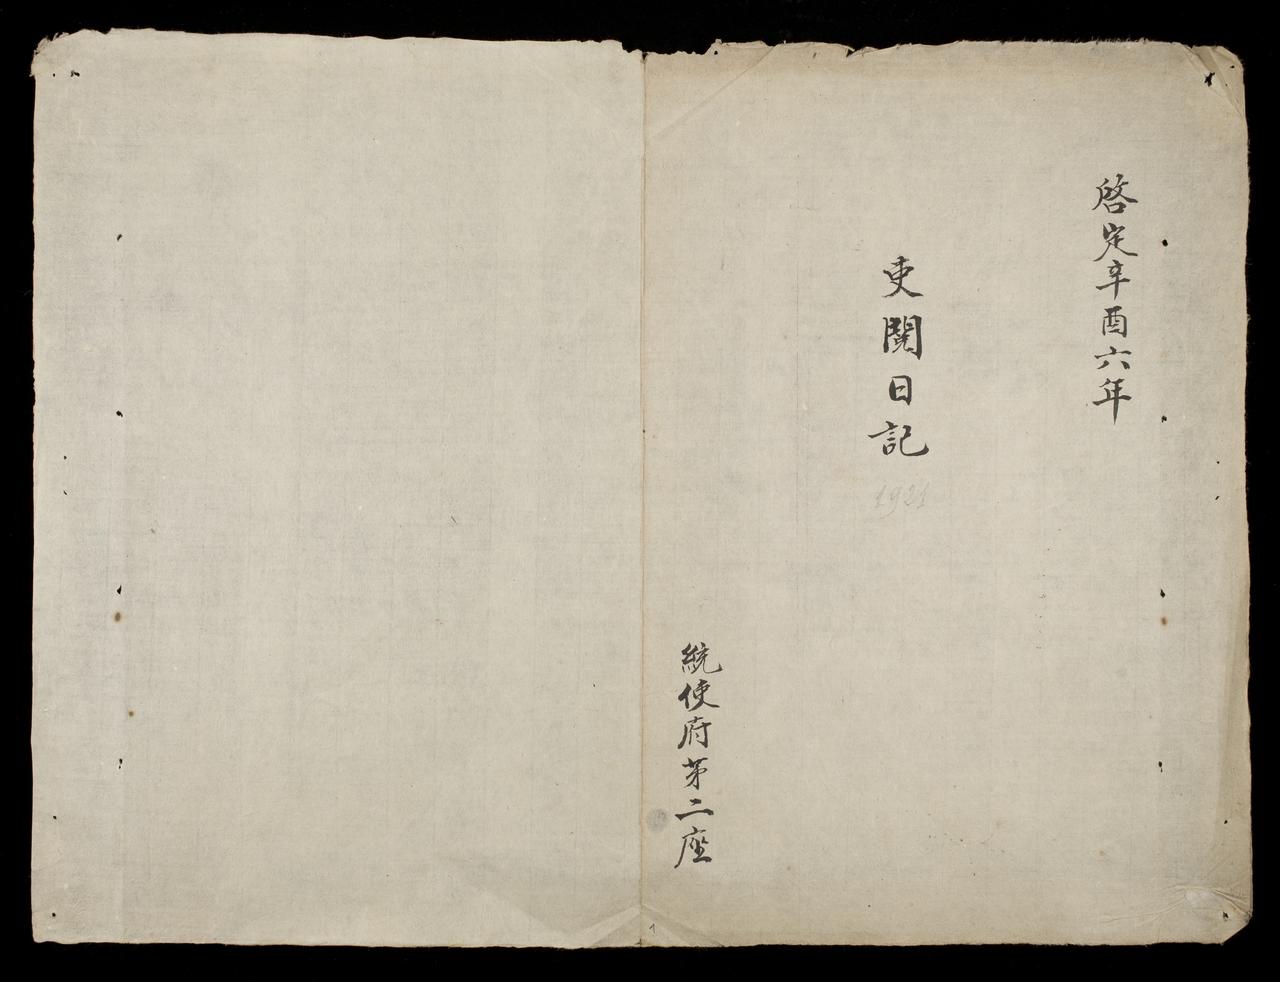 啓定辛酉六年
吏閱日記
1921
統使府苐二座
1